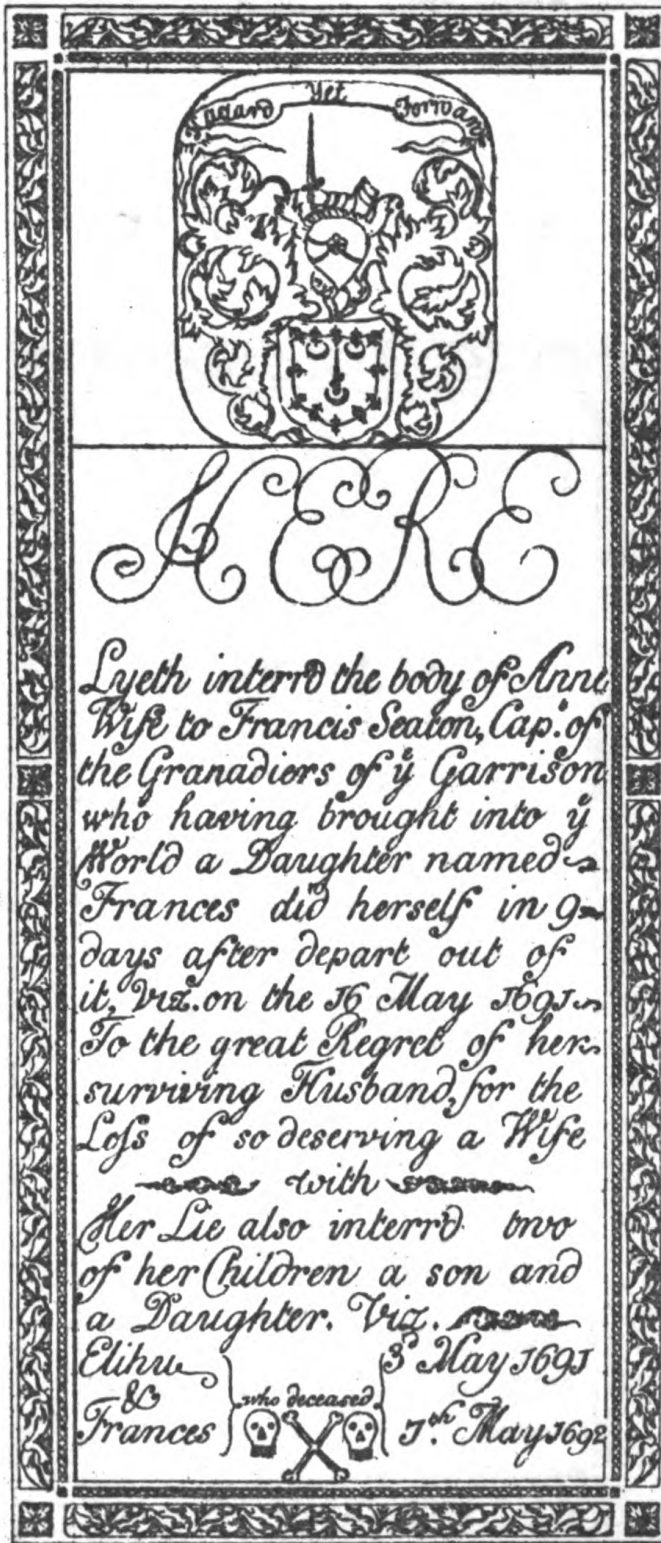 Hazard Yet Forward
HERE
Lyeth interr'd the body of Anne
Wife to Francis Seaton, Cap.t of
the Granadiers of ÿ Garrison
who having brought into ÿ
World a Daughter named
Frances did herself in 9
days after depart out of
it, Viz. on the 16 May 1691
To the great Regret of her
surviving Husband, for the
Loſs of so deserving a Wife
with
Her Lie also interr'd two
of her Children a son and
a Daughter. Viz.
Elihu 3d May 1691
& who deceased
Frances 7.th May 1692